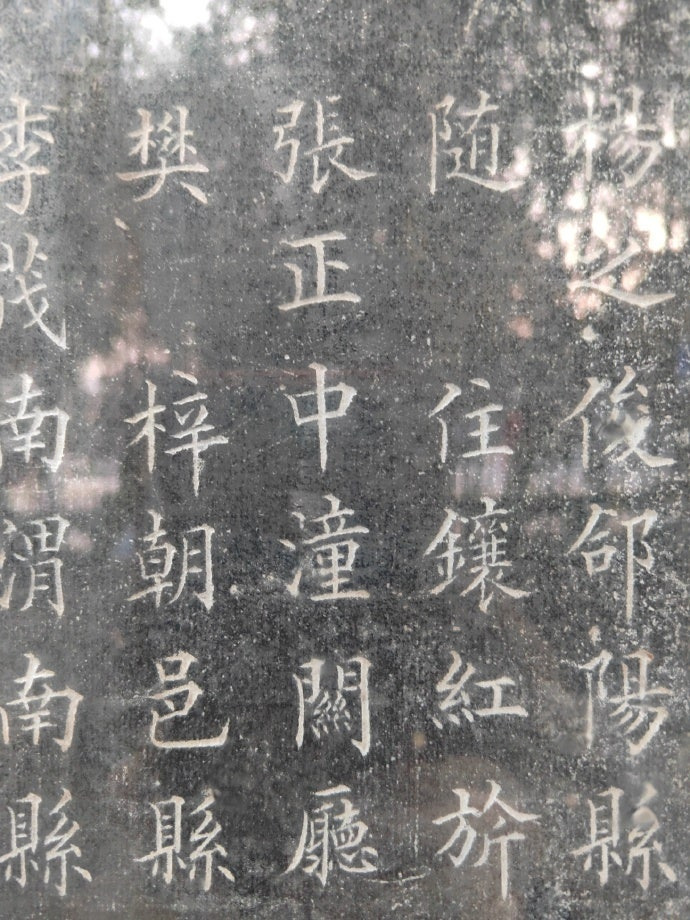 楊之俊郃陽縣
随住鑲紅旂
張正中潼關廳
樊梓朝邑縣
李茂南渭南縣